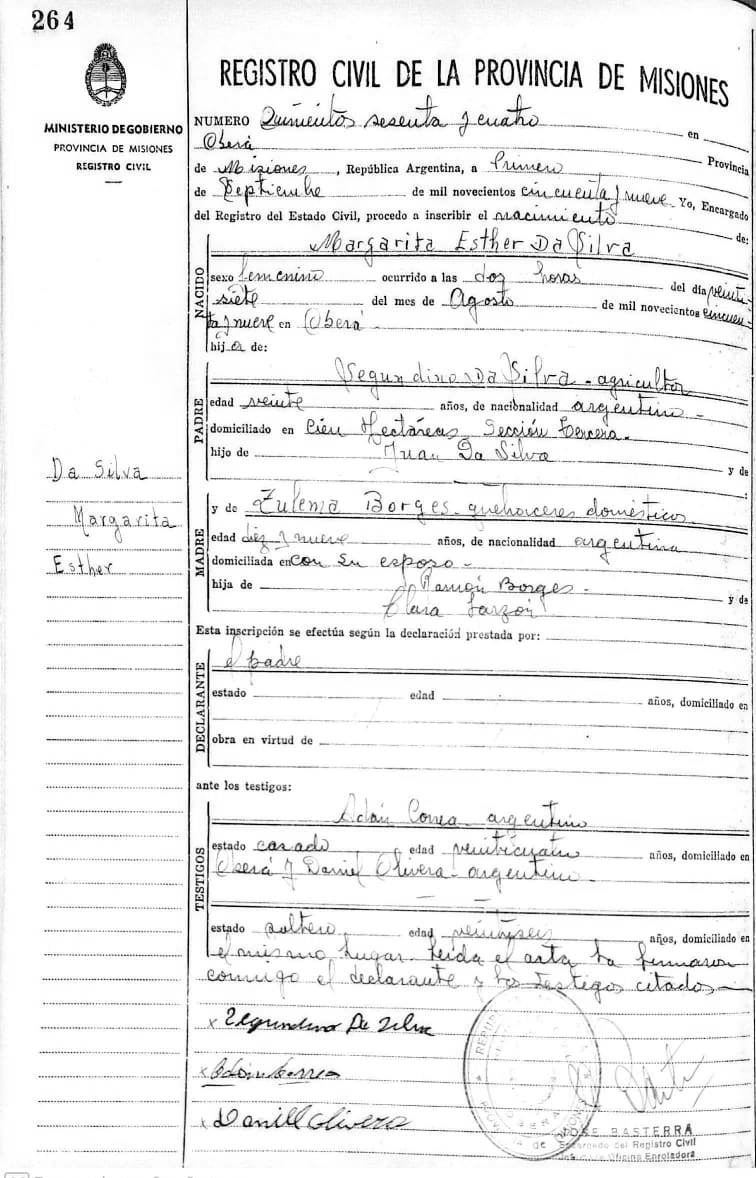 264
MINISTERIO DE GOBIERNO
PROVINCIA DE MISIONES
REGISTRO CIVIL
REGISTRO CIVIL DE LA PROVINCIA DE MISIONES
NUMERO Quinientos sesenta y cuatro en
Oberá Provincia
de Misiones, República Argentina, a Primero
de Septiembre de mil novecientos cincuenta y nueve Yo, Encargado
del Registro del Estado Civil, procedo a inscribir el nacimiento de:
NACIDO
Margarita Esther Da Silva
sexo femenino ocurrido a las dos horas del día veinti
siete del mes de Agosto de mil novecientos cincuen
ta y nueve en Oberá.
hija de:
PADRE
Segundino Da Silva - agricultor
edad veinte años, de nacionalidad argentino -
domiciliado en Cien Hectáreas Sección tercera.
hijo de Juan Da Silva y de
Da Silva
Margarita
Esther
MADRE
y de Zulema Borges. quehaceres domésticos.
edad diez y nueve años, de nacionalidad argentina
domiciliada en con su esposo -
hija de Ramón Borges - y de
Clara
Esta inscripción se efectúa según la declaración prestada por:
DECLARANTE
el padre
estado edad años, domiciliado en
obra en virtud de
ante los testigos:
TESTIGOS
Adán Correa - argentino
estado casado, edad veinticuatro años, domiciliado en
Oberá y Daniel Olivera - argentino.
estado soltero, edad veintiseis años, domiciliado en
el mismo lugar. Leida el acta la firmaron
conmigo el declarante y los testigos citados -
x Segundino Da Silva
x Adan Correa
x Daniel Olivera
JOSE BASTERRA
Encargado del Registro Civil
Oficina Enroladora